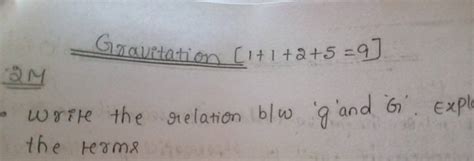 Gravitation [1+1+2+5=9]
2M
• Write the relation b/w 'g' and 'G'. Expla
the terms